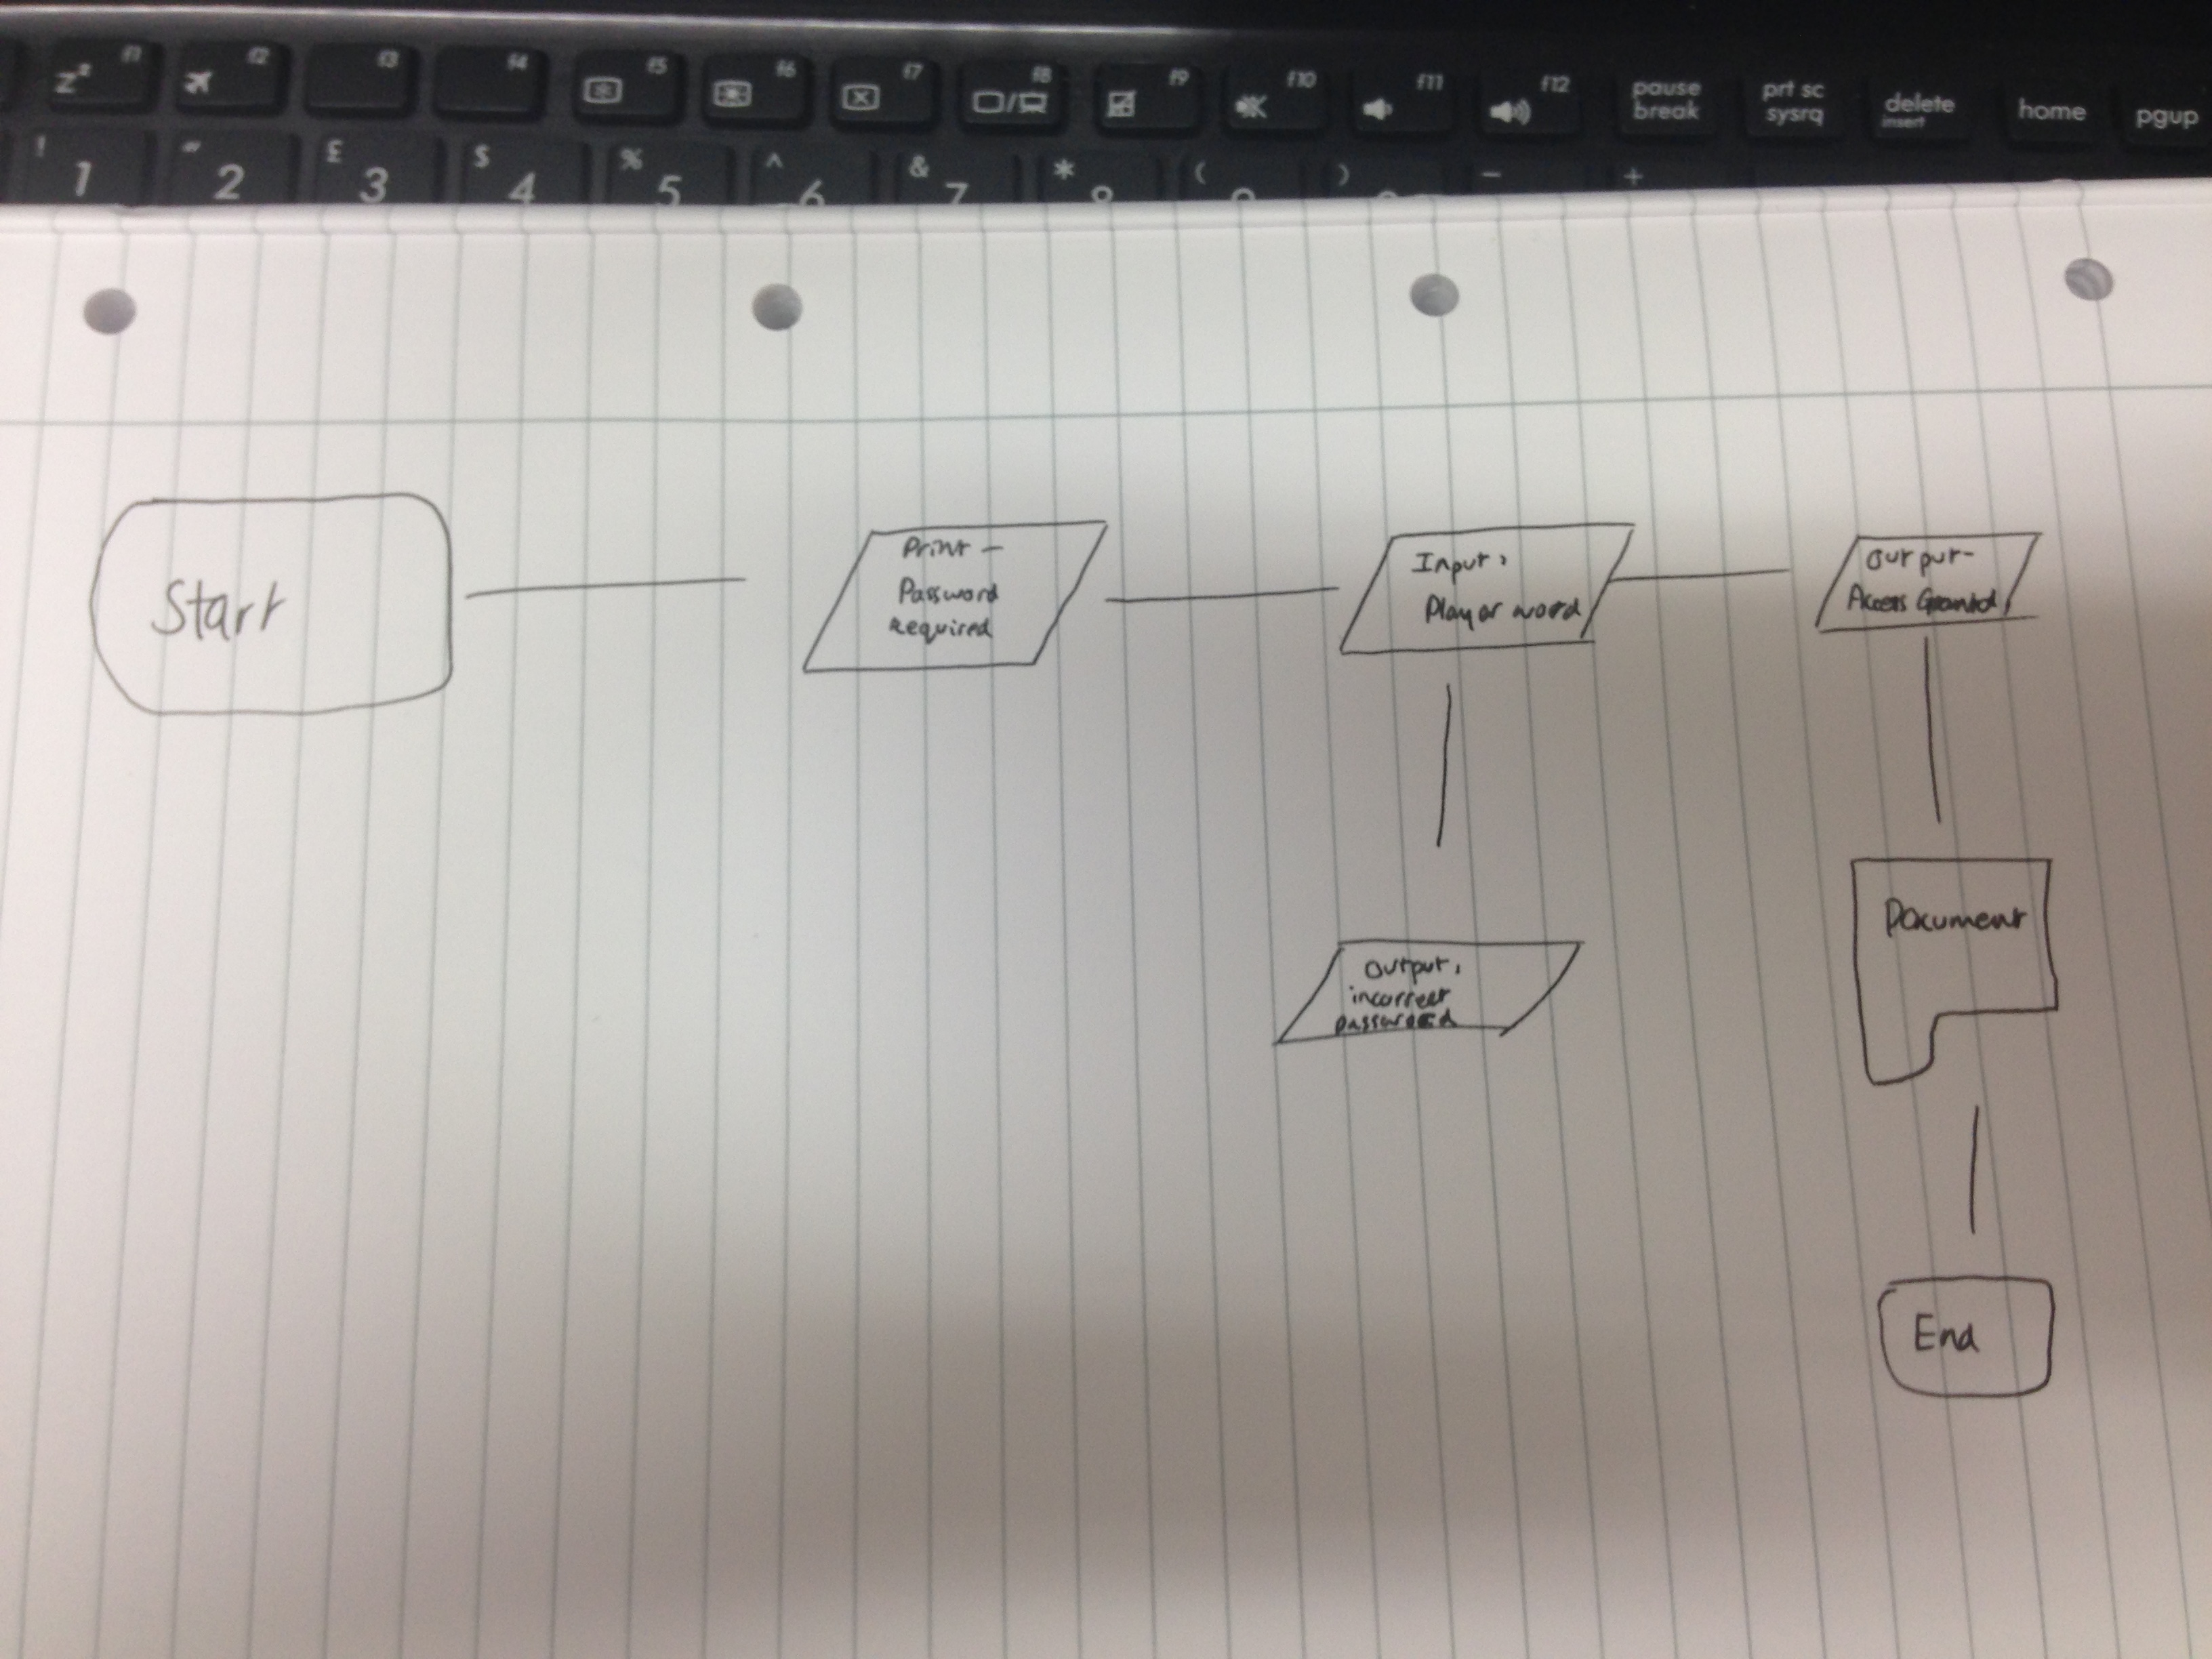 z² f1 f2 f3 f4 f5 f6 f7 f8 f9 f10 f11 f12 pause break prt sc sysrq delete insert home pgup
! 1 " 2 £ 3 $ 4 % 5 ^ 6 & 7 * 8 ( 9 ) 0 - +
Start
Print -
Password
required
Input,
Player word
Output-
Access Granted
Output,
incorrect
password
Document
End